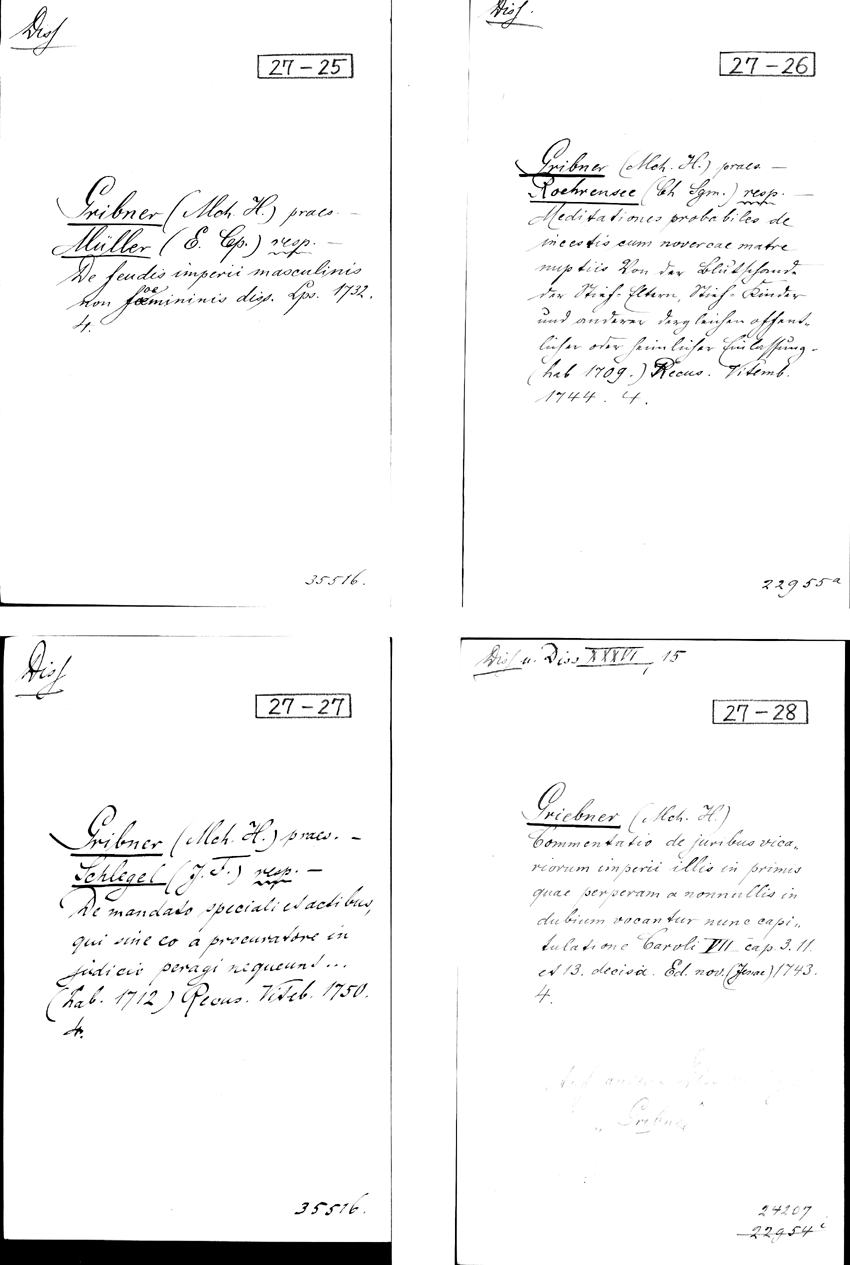 Diss
27-25
Gribner (Mch. H.) praes. —
Müller (E. Cp.) resp. —
De feudis imperii masculinis
non foemininis diss. Lps. 1732.
4.
35516.
Diss.
27-26
Gribner (Mch. H.) praes. —
Roehrensee (Ch Sgm.) resp. —
Meditationes probabiles de
incestis cum novercae matre
nuptiis Von der Blutschande
der Stief-Eltern, Stief-Kinder
und anderer dergleichen öffent-
licher oder heimlicher Einlassung.
(hab 1709.) Recus. Vitemb.
1744. 4.
22955a
Diss
27-27
Gribner (Mch. H.) praes. —
Schlegel (J. F.) resp. —
De mandato speciali et actibus,
qui sine eo a procuratore in
judicio peragi nequeunt...
(hab. 1712) Recus. Viteb. 1750.
4.
35516.
Diss u. Diss XXXVI, 15
27-28
Griebner (Mch. H.)
Commentatio de juribus vica-
riorum imperii illis in primis
quae perperam a nonnullis in
dubium vocantur nunc capi-
tulatione Caroli VII cap. 3. 11.
et 13. decisa. Ed. nov. (Jenae) 1743.
4.
"Gribner"
24207
22954 c